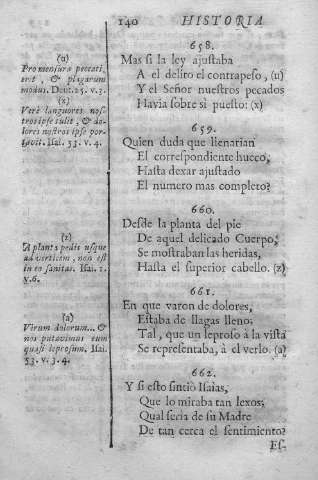 140 HISTORIA
658.
Mas si la ley ajustaba
A el delito el contrapeso, (u)
Y el Señor nuestros pecados
Havia sobre si puesto: (x)
(u)
Pro mensura peccati,
erit, & plagarum
modus. Deut. 25. v. 3.
(x)
Verè languores nos-
tros ipse tulit, & do-
lores nostros ipse por-
tavit. Isai. 53. v. 4.
659.
Quien duda que llenarian
El correspondiente hueco,
Hasta dexar ajustado
El numero mas completo?
660.
Desde la planta del pie
De aquel delicado Cuerpo,
Se mostraban las heridas,
Hasta el superior cabello. (z)
(z)
A planta pedis usque
ad verticem, non est
in eo sanitas. Isai. 1.
v.6.
661.
En que varon de dolores,
Estaba de llagas lleno;
Tal, que un leproso à la vista
Se representaba, à el verlo. (a)
(a)
Virum dolorum... &
nos putavimus eum
quasi leprosum. Isai.
53. v. 3. 4.
662.
Y si esto sintiò Isaias,
Que lo miraba tan lexos;
Qual seria de su Madre
De tan cerca el sentimiento?
Es-